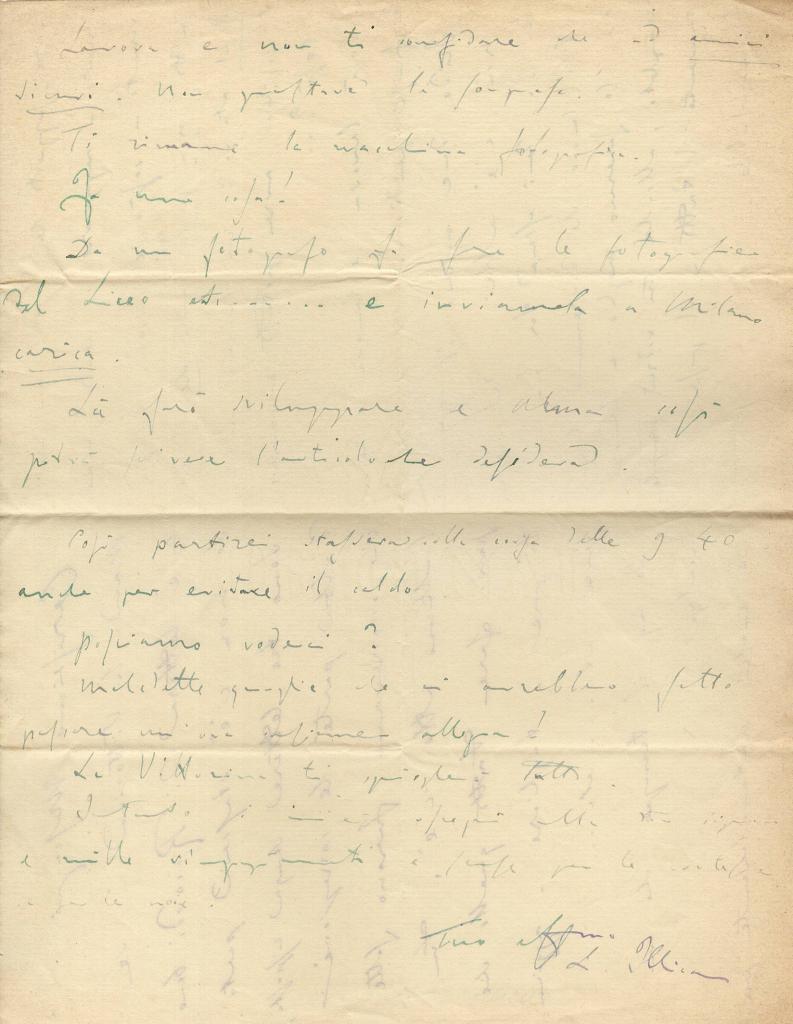 Lavora e non ti confidare che ad amici
sicuri. Non guastare la sorpresa!
Ti rimane la macchina fotografica.
Fa una cosa!
Da un fotografo fa fare le fotografie
del Liceo est........ e inviamela a Milano
carica.
Là farò sviluppare e così
potrà scrivere l'articolo che desidera.
Così partirei stassera colla corsa delle 9 40
anche per evitare il caldo
Possiamo vederci?
Maledette quaglie che ci avrebbero fatto
passare un'ora insieme allegra!
La Vittorina ti spiegherà tutto.
Intanto i miei ossequi alla tua signora
e mille ringraziamenti e scuse per le
Tuo affmo
L. Illica